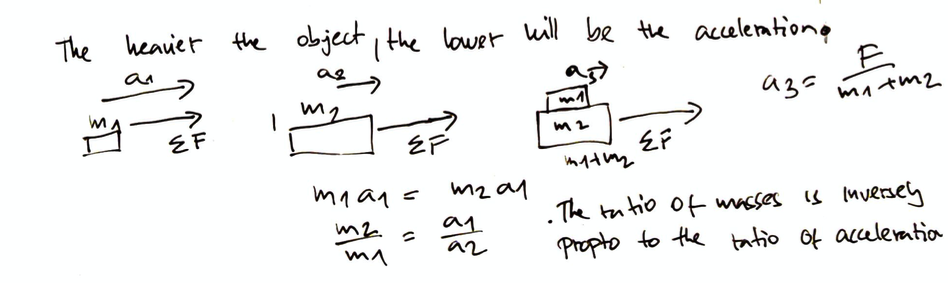 The heavier the object, the lower will be the acceleration.
a1 a2 a3 a3 = F / m1+m2
m1 m2 m1
ΣF ΣF m2 ΣF
m1+m2
m1a1 = m2a1 . The ratio of masses is inversely
m2/m1 = a1/a2 propto to the ratio of acceleration